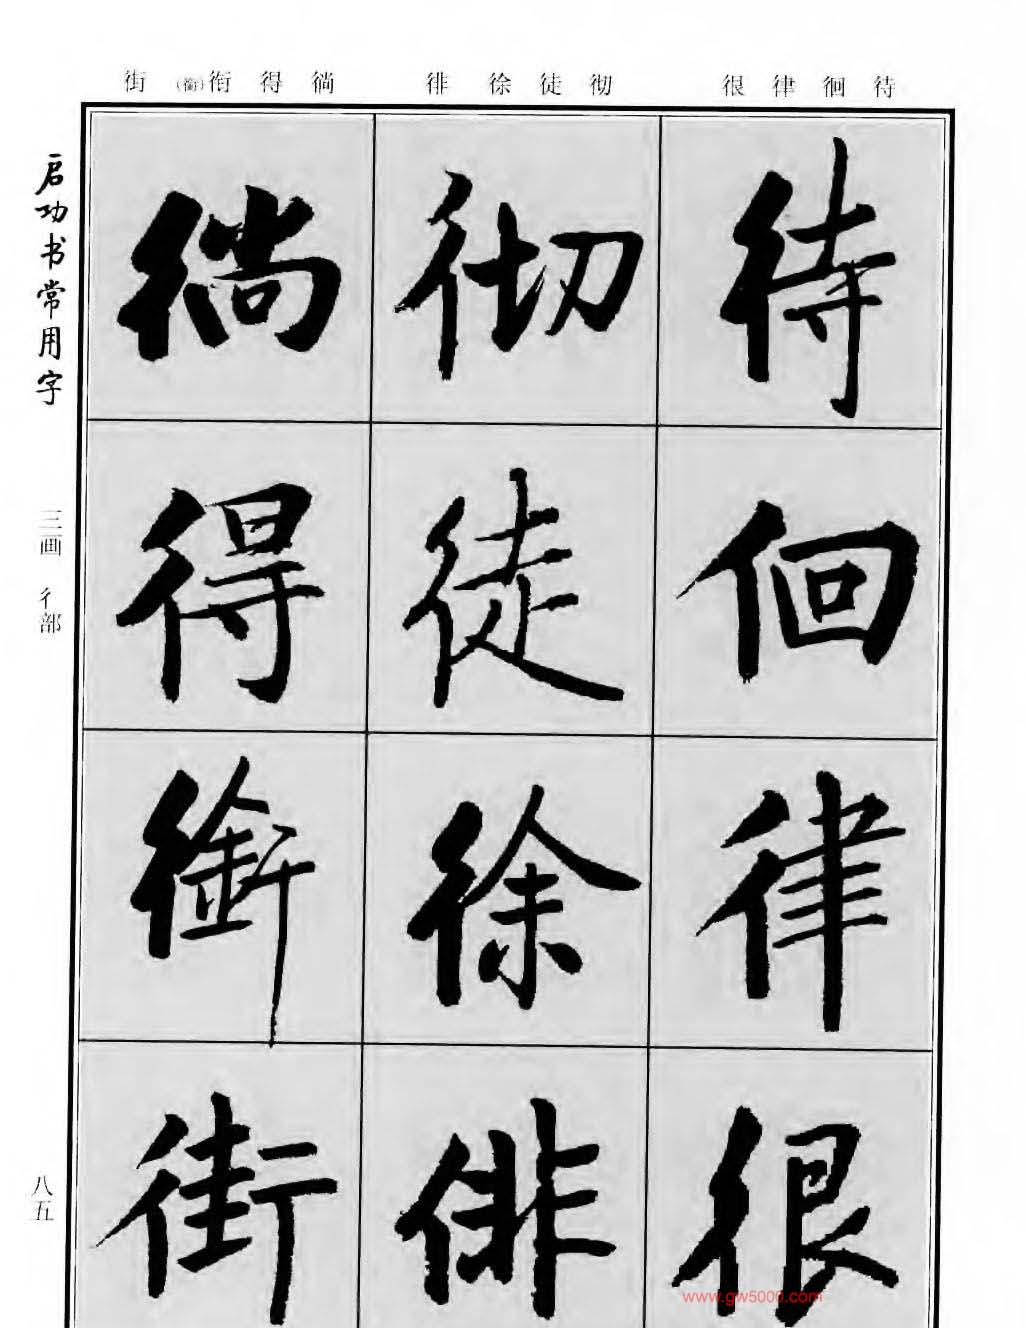 街 (銜)衔 得 徜 徘 徐 徒 彻 很 律 徊 待
启功书常用字
三画 彳部
八五
待 彻 徜
徊 徒 得
律 徐 銜
很 徘 街
www.gw5000.com